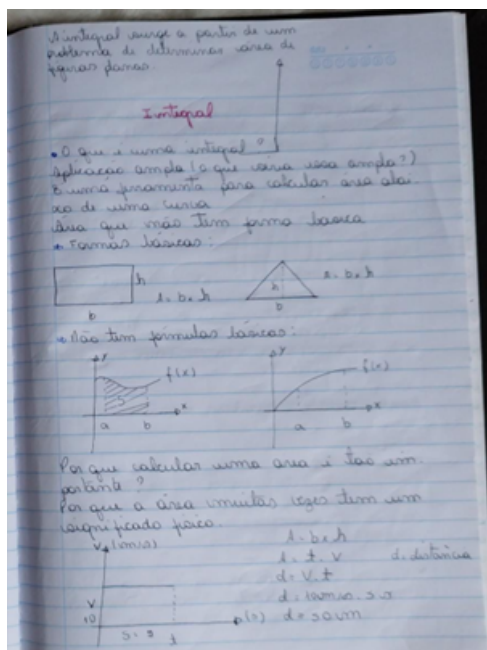 A integral surge a partir de um
problema de determinar área de
figuras planas.
Integral
• O que é uma integral?
Aplicação ampla (o que seria essa ampla?)
É uma ferramenta para calcular área abai
xo de uma curva
Área que não tem forma básica
• Formas básicas:
h
b
A = b x h
h
b
A = b x h
• Não tem fórmulas básicas:
y
f(x)
S
a b x
y
f(x)
a b x
Por que calcular uma area é tao im-
portante?
Por que a área muitas vezes tem um
significado físico.
V (m/s)
V
10
S = 5
t
(s)
A = b x h
A = t . V
d = distância
d = V . t
d = 10m/s . 5 s
d = 50m